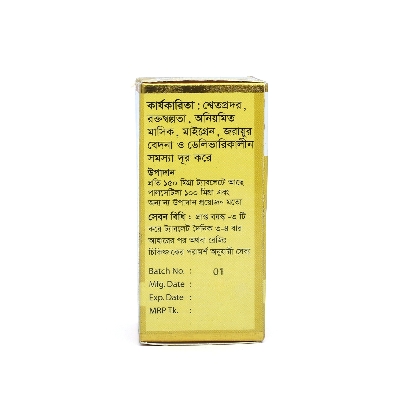 কার্যকারিতা : শ্বেতপ্রদর,
রক্তস্বল্পতা, অনিয়মিত
মাসিক, মাইগ্রেন, জরায়ুর
বেদনা ও ডেলিভারিকালীন
সমস্যা দূর করে
উপাদান
প্রতি ১৫০ মিগ্রা ট্যাবলেটে আছে
পালসেটিলা ১০০ মিগ্রা এবং
অন্যান্য উপাদান প্রয়োজন মতো
সেবন বিধি : প্রাপ্ত বয়স্ক -৩ টি
করে ট্যাবলেট দৈনিক ৩-৪ বার
আহারের পর অথবা রেজিঃ
চিকিৎসকের পরামর্শ অনুযায়ী সেব্য
Batch No. : 01
Mfg. Date :
Exp. Date :
MRP Tk. :